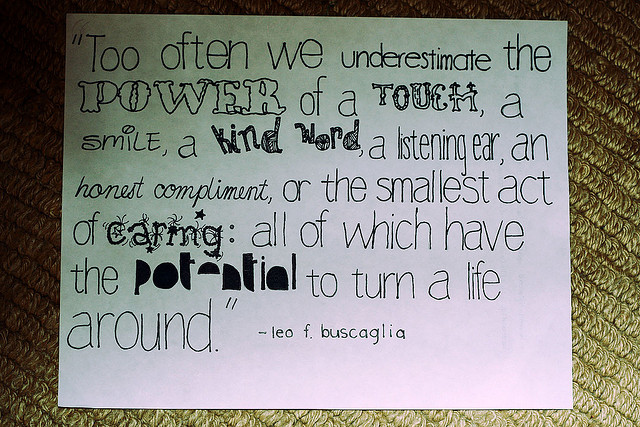 "Too often we underestimate the
POWER of a TOUCH, a
SMiLE, a kind word, a listening ear, an
honest compliment, or the smallest act
of caring: all of which have
the potential to turn a life
around."
-leo f. buscaglia